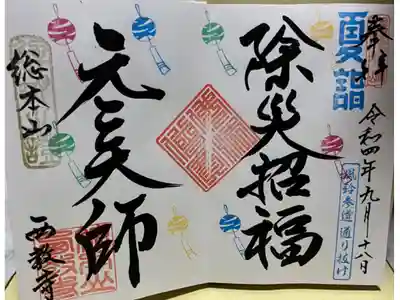 奉拝
夏詣
令和四年九月十八日
風鈴参道 通り抜け
除災招福
元三大師
総本山
西教寺